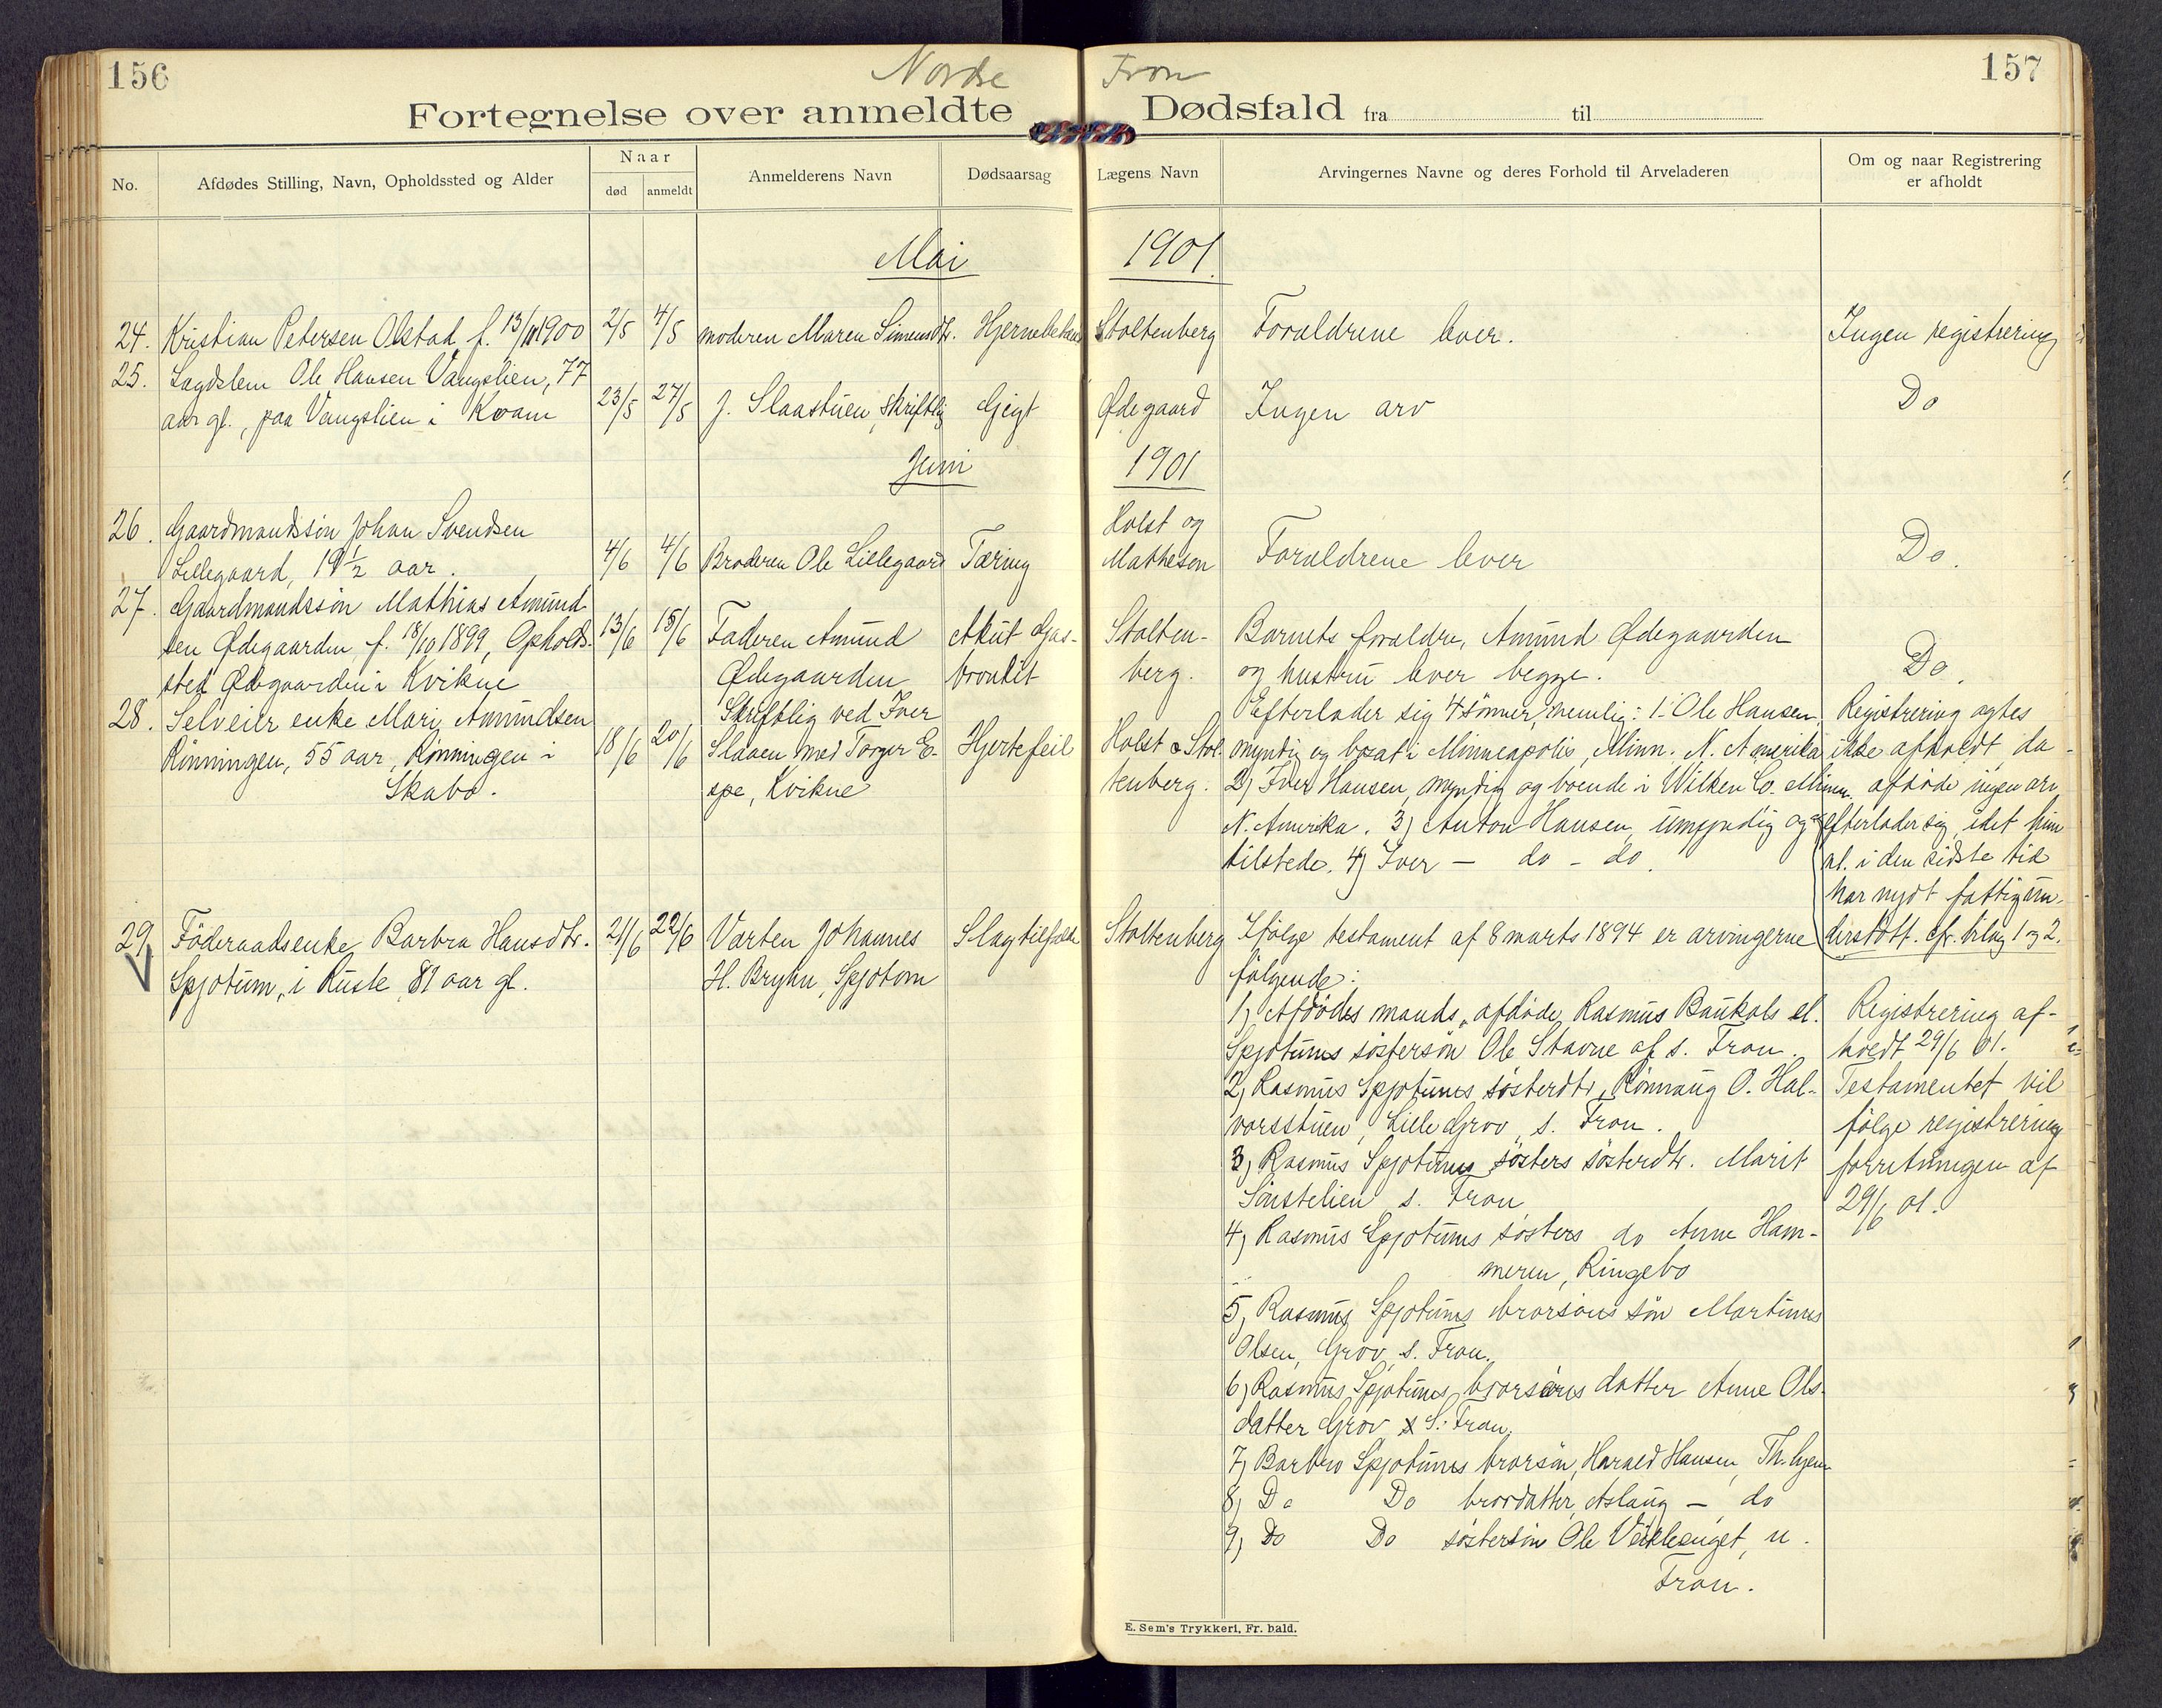 156
Nordre Fron
157
Fortegnelse over anmeldte Dødsfald fra til
No.
Afdødes Stilling, Navn, Opholdssted og Alder
Naar
død
anmeldt
Anmelderens Navn
Dødsaarsag
Lægens Navn
Arvingernes Navne og deres Forhold til Arveladeren
Om og naar Registrering
er afholdt
Mai 1901.
24. Kristian Petersen Olstad f. 13/11 1900
2/5
4/5
moderen Maren Simensdtr.
Stoltenberg
Forældrene lever.
Ingen registrering
25. Lægdslem Ole Hansen Vangslien, 77
aar gl., paa Vangslien i Kvam
23/5
27/5
J. Slaastuen, skriftlig
Gigt
Ødegaard
Ingen arv
Do
Juni 1901
26. Gaardmandssøn Johan Svendsen
Lillegaard, 19 1/2 aar.
4/6
4/6
Broderen Ole Lillegaard
Tæring
Holst og
Matheson
Forældrene lever
Do.
27. Gaardmandssøn Mathias Amund-
sen Ødegaarden f. 18/10 1899, Opholds-
sted Ødegaarden i Kvikne
13/6
15/6
Faderen Amund
Ødegaarden
Akut Gas-
Stolten-
berg.
Barnets forældre, Amund Ødegaarden
og hustru lever begge.
Do.
28. Selveier enke Mari Amundsen
Rønningen, 55 aar, Rønningen i
Skabo.
18/6
20/6
Skriftlig ved Iver
Slaaen med Torger E-
spe, Kvikne
Hjertefeil
Holst & Stol-
tenberg.
Efterlader sig 4 sønner, nemlig: 1. Ole Hansen,
myndig og bosat i Minneapolis, Minn. N. Amerika
2) Iver Hansen, myndig og boende i Wilken Co. Minn.
N. Amerika. 3) Anton Hansen, umyndig og
tilstede. 4) Iver — do - do.
Registrering agtes
ikke afholdt, da
afdøde ingen arv
efterlader sig, idet hun
al. i den sidste tid
har nydt fattigun-
derstøtt. cfr. bilag 1 og 2.
29. Føderaadsenke Barbra Hansdtr.
Spjotum, i Ruste, 81 aar gl.
21/6
22/6
Værten Johannes
H. Bryhn, Spjotom
Slagtilfælde
Stoltenberg
Ifølge testament af 8 marts 1894 er arvingerne
følgende:
1) Afdødes mands, afdøde Rasmus Baukols el.
Spjotums søstersøn Ole Stavne af s. Fron.
2) Rasmus Spjotums søsterdtr, Rønnaug O. Hal-
vorsstuen, Lille Grov, s. Fron.
3) Rasmus Spjotums søsters søsterdtr. Marit
Sønstelien s. Fron
4) Rasmus Spjotums søsters do Anne Ham-
meren, Ringebo
5) Rasmus Spjotums brorsøns søn Martinus
Olsen, Grov s. Fron.
6) Rasmus Spjotums brorsøns datter Anne Ols-
datter Grov S. Fron.
7) Barbro Spjotums brorsøn, Harald Hansen, Th.hjem
8) Do Do brordatter, Aslaug — do
9) Do Do søstersøn Ole Veiklesuget, n.
Fron.
Registrering af-
holdt 29/6 01.
Testamentet vil
følge registrerings
forretningen af
29/6 01.
E. Sem's Trykkeri, Fr. hald.